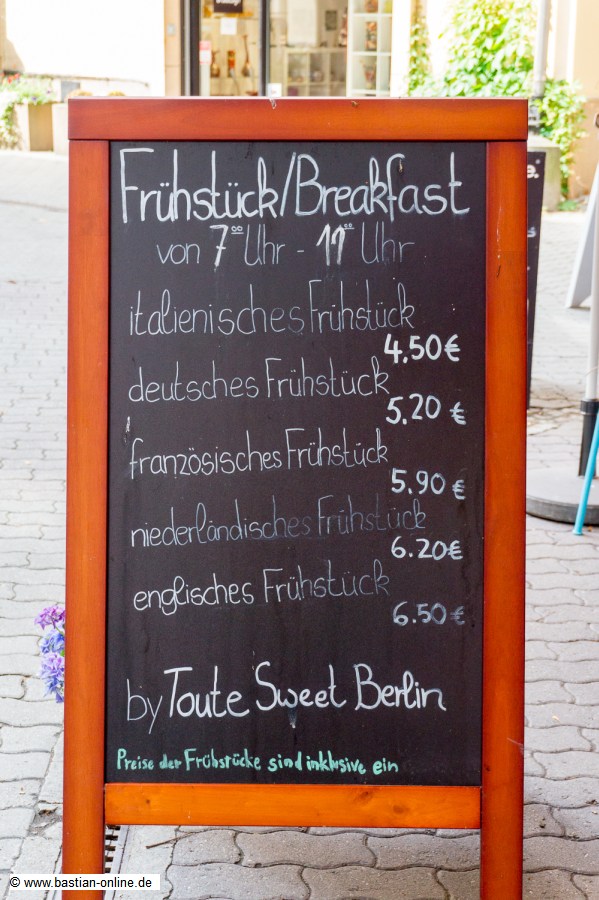 Frühstück/Breakfast
von 7⁰⁰ Uhr - 11⁰⁰ Uhr
italienisches Frühstück
4.50€
deutsches Frühstück
5.20 €
französisches Frühstück
5.90 €
niederländisches Frühstück
6.20€
englisches Frühstück
6.50 €
by Toute Sweet Berlin
Preise der Frühstücke sind inklusive ein
© www.bastian-online.de